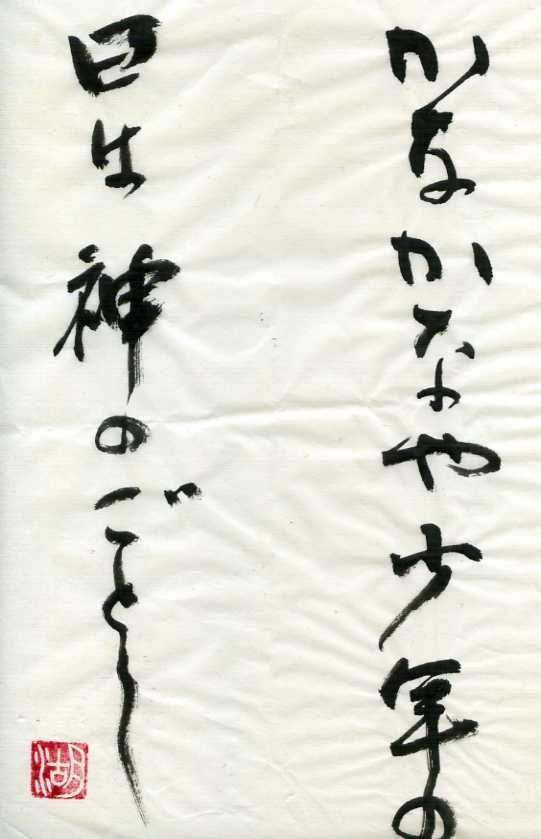 かなかなや少年の
日は神のごとし
湖